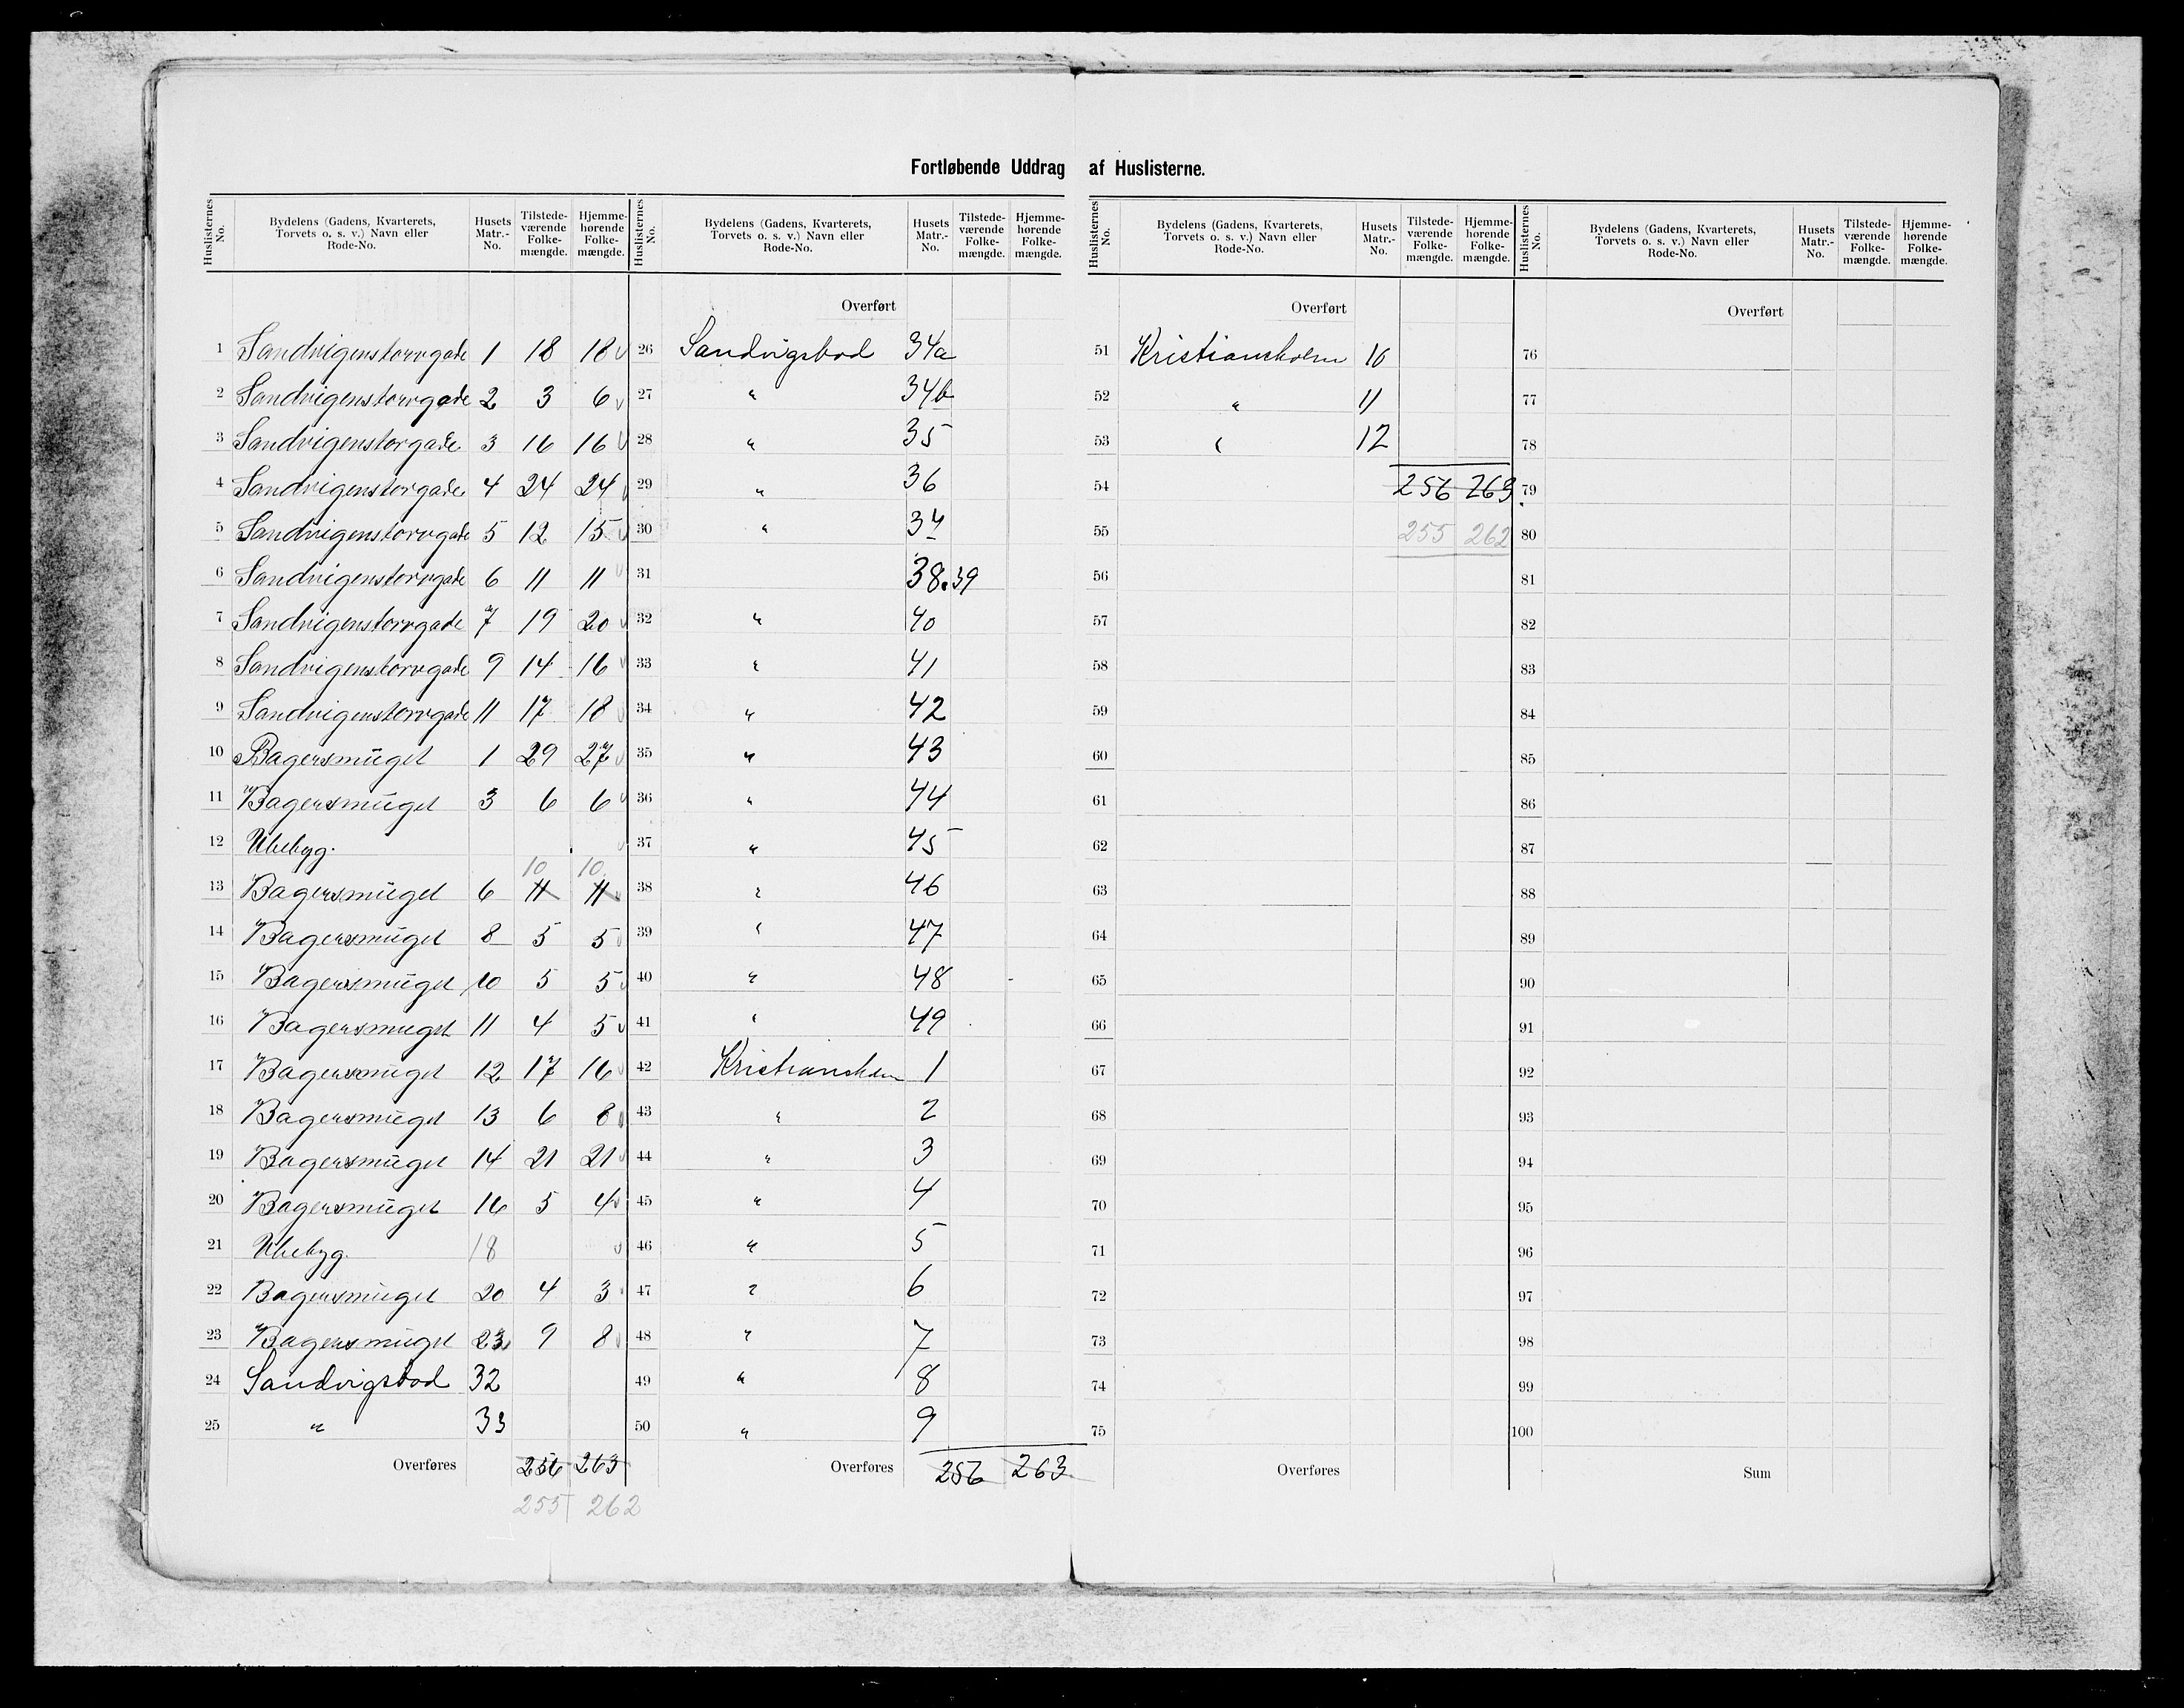 Fortløbende Uddrag af Huslisterne.
Huslisternes No. Bydelens (Gadens, Kvarterets, Torvets o. s. v.) Navn eller Rode-No. Husets Matr.-No. Tilstedeværende Folkemængde. Hjemmehørende Folkemængde.
1 Sandvigenstorvgade 1 18 18
2 Sandvigenstorvgade 2 3 6
3 Sandvigenstorgade 3 16 16
4 Sandvigenstorgade 4 24 24
5 Sandvigenstorvgade 5 12 15
6 Sandvigenstorvgade 6 11 11
7 Sandvigenstorvgade 7 19 20
8 Sandvigenstorvgade 9 14 16
9 Sandvigenstorvgade 11 17 18
10 Bagersmüget 1 29 27
11 Bagersmüget 3 6 6
12 Ubebyg.
10 10
13 Bagersmüget 6 11 11
14 Bagersmüget 8 5 5
15 Bagersmüget 10 5 5
16 Bagersmuget 11 4 5
17 Bagersmüget 12 17 16
18 Bagersmüget 13 6 8
19 Bagersmüget 14 21 21
20 Bagersmüget 16 5 4
21 Ubebyg. 18
22 Bagersmüget 20 4 3
23 Bagersmüget 23 9 8
24 Sandvigsbod 32
25 " 33
Overføres 256 263
255 262
Huslisternes No. Bydelens (Gadens, Kvarterets, Torvets o. s. v.) Navn eller Rode-No. Husets Matr.-No. Tilstedeværende Folkemængde. Hjemmehørende Folkemængde.
Overført
26 Sandvigsbod 34a
27 " 34b
28 " 35
29 " 36
30 " 37
31 38.39
32 " 40
33 " 41
34 " 42
35 " 43
36 " 44
37 " 45
38 " 46
39 " 47
40 " 48
41 " 49
42 Kristiansholm 1
43 " 2
44 " 3
45 " 4
46 " 5
47 " 6
48 " 7
49 " 8
50 " 9
Overføres 256 263
Huslisternes No. Bydelens (Gadens, Kvarterets, Torvets o. s. v.) Navn eller Rode-No. Husets Matr.-No. Tilstedeværende Folkemængde. Hjemmehørende Folkemængde.
Overført
51 Kristiansholm 10
52 " 11
53 " 12
54 256 263
55 255 262
56
57
58
59
60
61
62
63
64
65
66
67
68
69
70
71
72
73
74
75
Overføres
Huslisternes No. Bydelens (Gadens, Kvarterets, Torvets o. s. v.) Navn eller Rode-No. Husets Matr.-No. Tilstedeværende Folkemængde. Hjemmehørende Folkemængde.
Overført
76
77
78
79
80
81
82
83
84
85
86
87
88
89
90
91
92
93
94
95
96
97
98
99
100
Sum